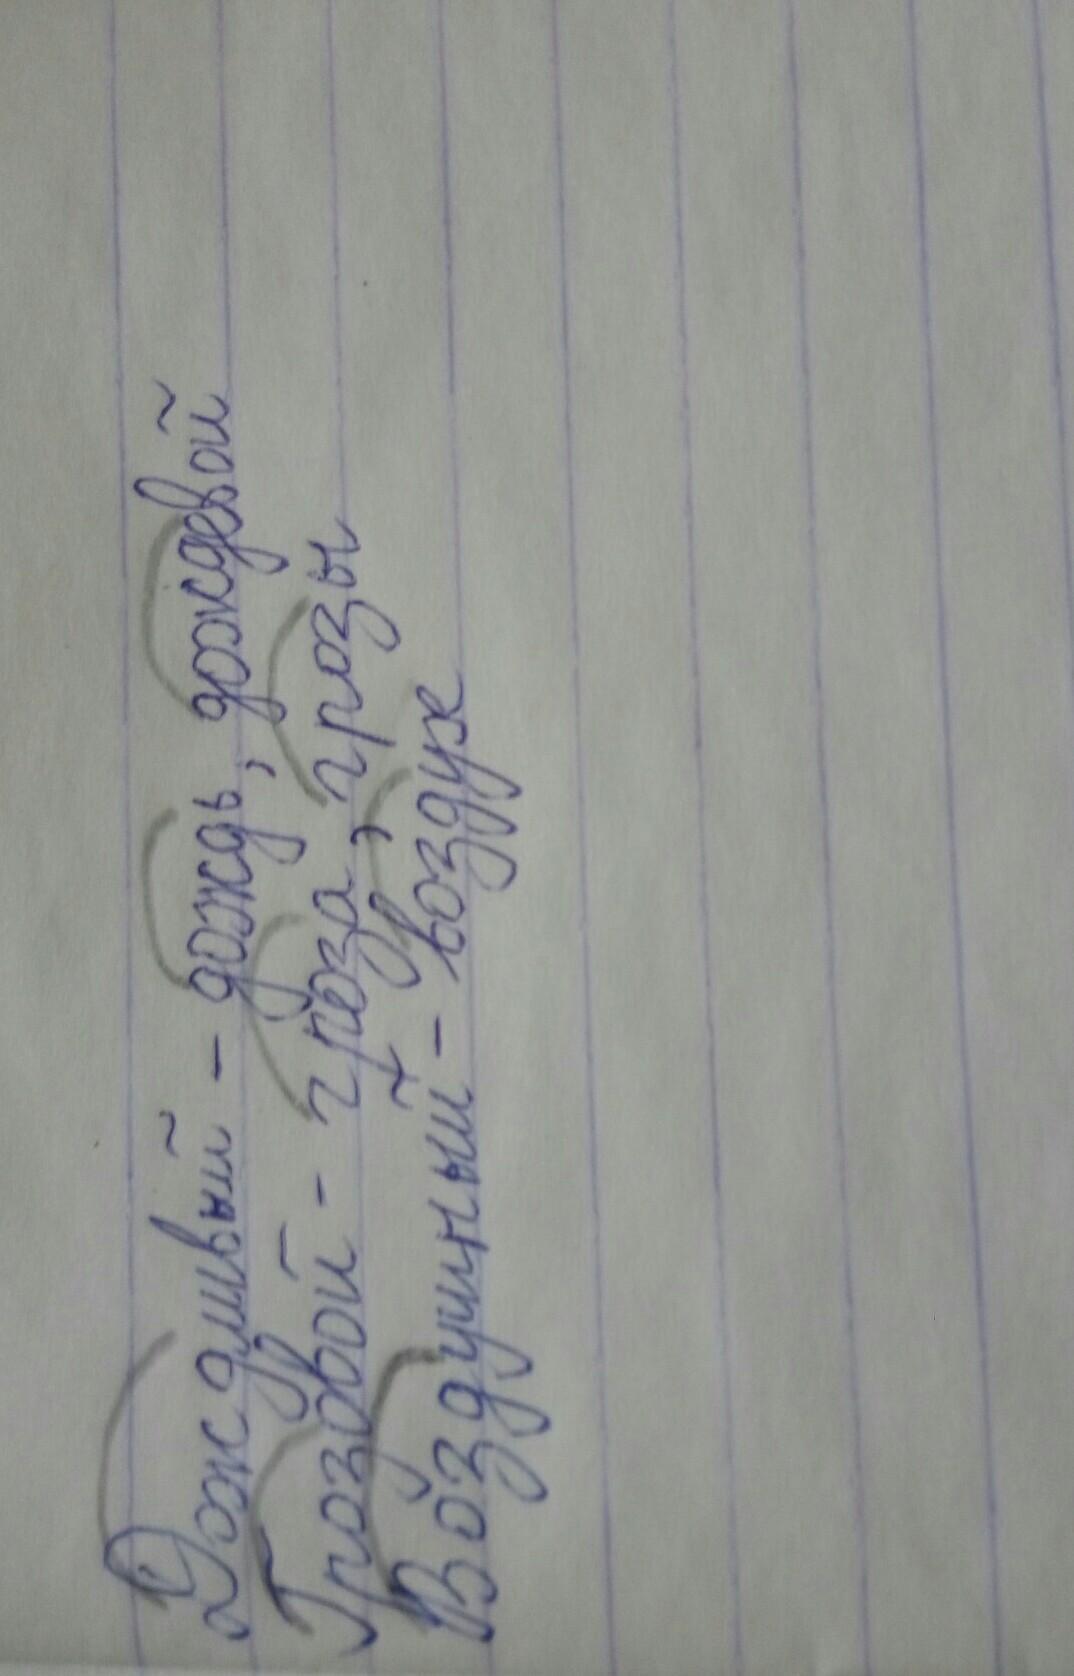 Дождливый - дождь, дождевой
Грозовой - гроза, грозы
Воздушный - воздух